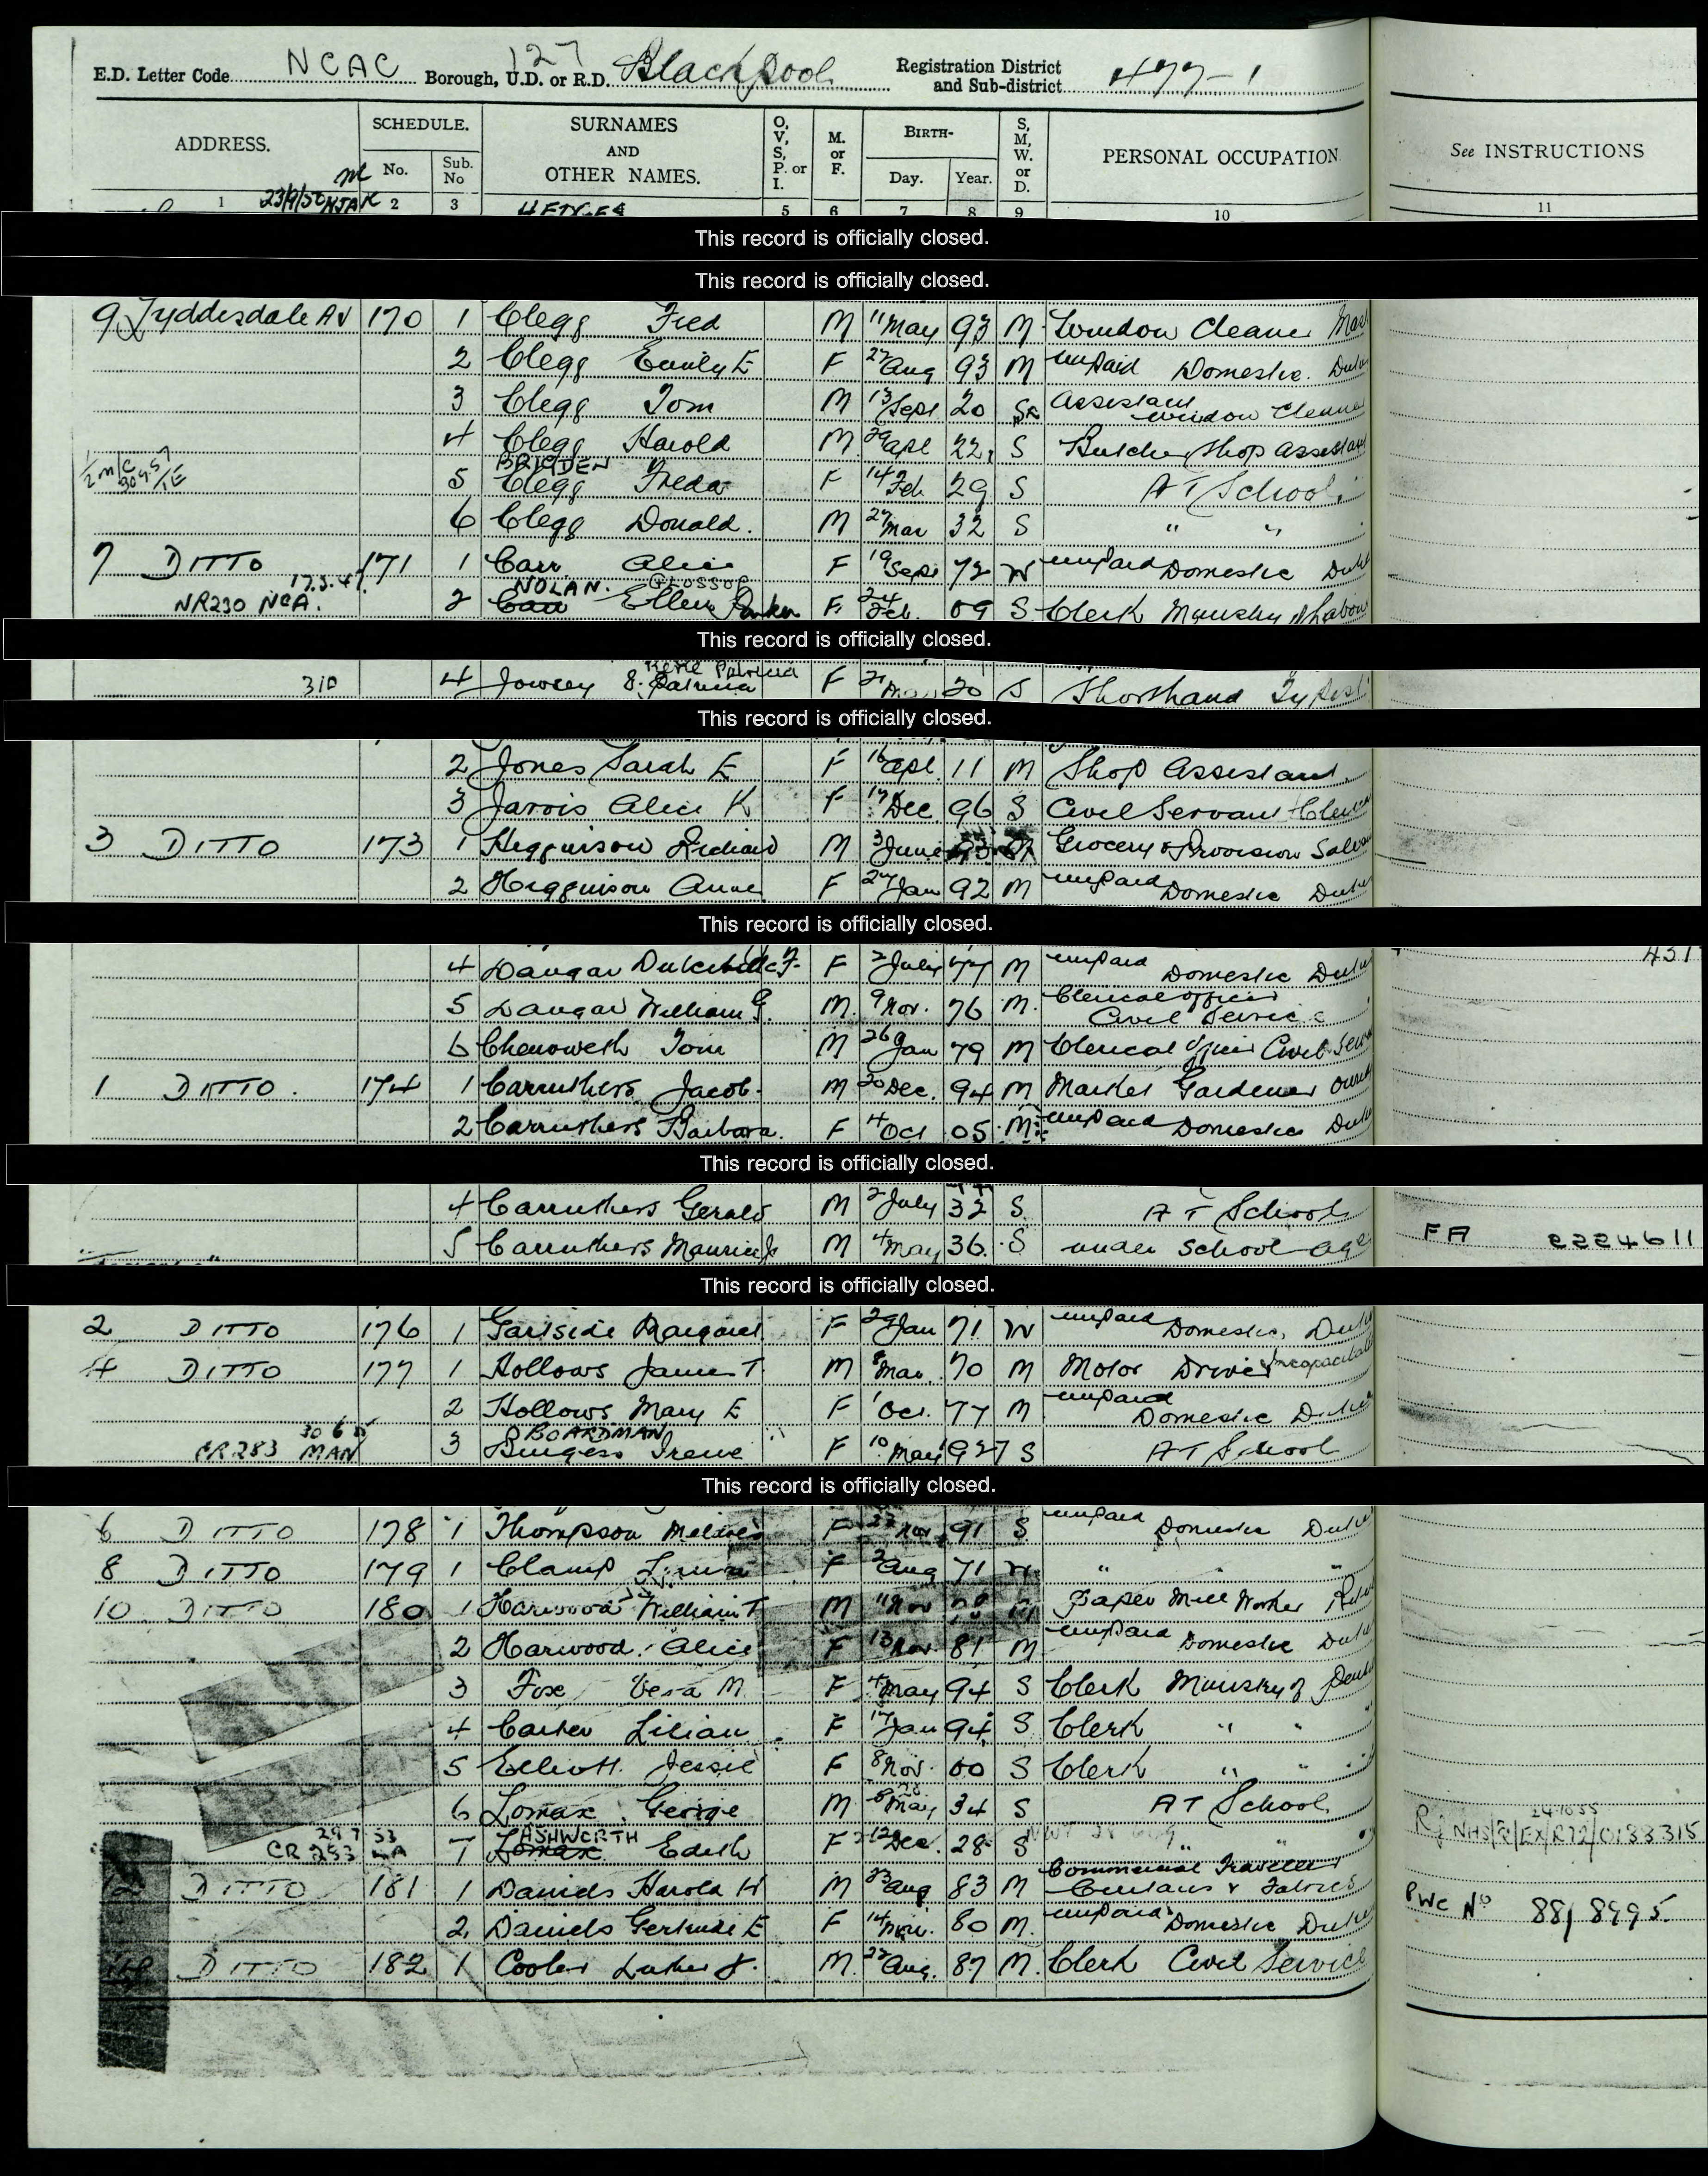 E.D. Letter Code NCAC Borough, U.D. or R.D. 127 Blackpool Registration District and Sub-district 477-1
ADDRESS. SCHEDULE. No. Sub. No SURNAMES AND OTHER NAMES. O, V, S, P. or I. M. or F. BIRTH- Day. Year. S, M, W. or D. PERSONAL OCCUPATION See INSTRUCTIONS
1 2 3 5 6 7 8 9 10 11
This record is officially closed.
This record is officially closed.
9 Lyddesdale Av 170 1 Clegg Fred M 11 May 93 M Window Cleaner
2 Clegg Emily E F 27 Aug 93 M unpaid Domestic
3 Clegg Tom M 13 Sept 20 S Assistant Window Cleaner
4 Clegg Harold M 29 Apl 22 S Butcher Shop Assistant
BRIGDEN
5 Clegg Freda F 14 Feb 29 S AT School
6 Clegg Donald. M 27 Mar 32 S " "
7 DITTO 171 1 Carr Alice F 19 Sept 72 W unpaid Domestic
NOLAN. GLOSSOP
NR230 NCA. 2 Carr Ellen F 24 Feb. 09 S Clerk Ministry of Labour
This record is officially closed.
310 4 Jowsey F 20 S Shorthand Typist
This record is officially closed.
2 Jones Sarah E F 16 Apl 11 M Shop Assistant
3 Jarvis Alice K F 17 Dec 96 S Civil Servant
3 DITTO 173 1 Higginson Richard M 3 June Grocery & Provision
2 Higginson Annie F 24 Jan 92 M unpaid Domestic
This record is officially closed.
4 Dangar F 2 July 77 M unpaid Domestic
5 Dangar William G. M. 9 Nov. 76 M. Clerical Officer Civil Service
6 Chenoweth Tom M 26 Jan 79 M Clerical Officer Civil
1 DITTO . 174 1 Carruthers Jacob. M 20 Dec. 94 M Market Gardener
2 Carruthers Barbara. F 4 Oct 05 M unpaid Domestic
This record is officially closed.
4 Carruthers Gerald M 2 July 32 S AT School
5 Carruthers Maurice M 4 May 36. S under School age FA 2224611
This record is officially closed.
2 DITTO 176 1 Gartside Margaret F 29 Jan 71 W unpaid Domestic
4 DITTO 177 1 Hollows James T M Mar. 70 M Motor Driver
2 Hollows Mary E F 1 Oct. 77 M unpaid Domestic
BOARDMAN
CR283 MAN 3 Burgess Irene F 10 May 1927 S AT School
This record is officially closed.
6 DITTO 178 1 Thompson F 22 Nov 91 S. unpaid Domestic
8 DITTO 179 1 Clamp F 2 Aug 71 W. " "
10 DITTO 180 1 Harwood William T M 11 Nov Paper Mill Worker
2 Harwood. Alice F 13 Nov 81 M unpaid Domestic
3 Fox Vera M. F 4 May 94 S Clerk Ministry of
4 Carter Lilian F 17 Jan 94 S Clerk " "
5 Elliott. Jessie F 8 Nov. 00 S Clerk " "
6 Lomax George M 8 May 34 S AT School
ASHWORTH
CR 283 7 Lomax Edith F 12 Dec. 28 S " "
NHS/R/EX/R72/0133315
DITTO 181 1 Daniels Harold H M 23 Aug 83 M Commercial Traveller Curtains & Fabrics
PWC No 88/8995.
2 Daniels Gertrude E F 14 80 M. unpaid Domestic
DITTO 182 1 Luther J. M. 22 Aug. 87 M. Clerk Civil Service